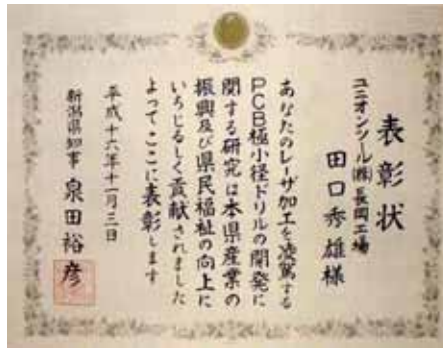 表彰状
ユニオンツール(株)長岡工場
田口秀雄様
あなたのレーザ加工を凌駕する
PCB極小径ドリルの開発に
関する研究は本県産業の
振興及び県民福祉の向上に
いちじるしく貢献されました
よってここに表彰します
平成十六年十一月三日
新潟県知事 泉田裕彦